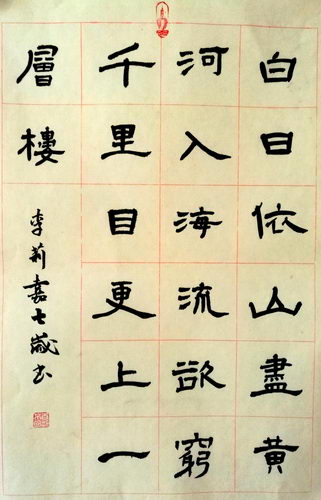 白日依山盡黄
河入海流欲窮
千里目更上一
層樓
李莉嘉七歲书